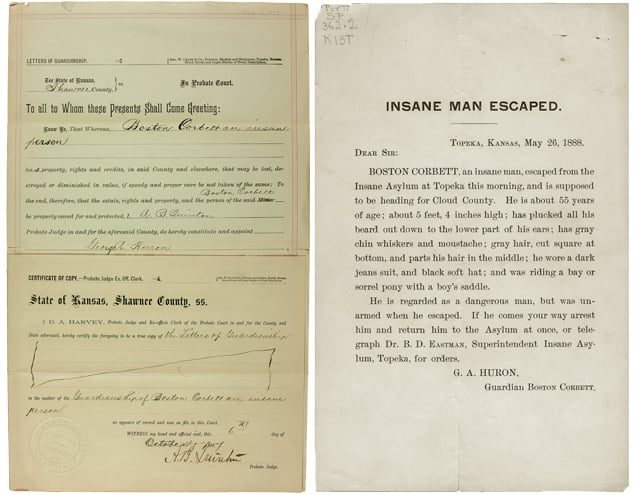 LETTERS OF GUARDIANSHIP. —2
The State of Kansas,
Shawnee County, ss.
In Probate Court.
To all to Whom these Presents Shall Come Greeting:
Know Ye, That Whereas, Boston Corbett an insane
person
has property, rights and credits, in said County and elsewhere, that may be lost, de-
stroyed or diminished in value, if speedy and proper care be not taken of the same: To
Boston Corbett
the end, therefore, that the estate, rights and property, and the person of the said
be properly cared for and protected, I, A B Quinton
Probate Judge in and for the aforesaid County, do hereby constitute and appoint
George A Huron
CERTIFICATE OF COPY.—Probate Judge Ex. Off. Clerk. —4.
State of Kansas, Shawnee County, ss.
I, D. A. HARVEY, Probate Judge and Ex-officio Clerk of the Probate Court in and for the County and
State aforesaid, hereby certify the foregoing to be a true copy of the Letters of Guardianship
in the matter of the Guardianship of Boston Corbett an insane
person
as appears of record and now on file in this Court.
WITNESS my hand and official seal, this 6th day of
October
A.B. Quinton
Probate Judge.
SP
362.2
K13T
INSANE MAN ESCAPED.
TOPEKA, KANSAS, May 26, 1888.
DEAR SIR:
BOSTON CORBETT, an insane man, escaped from the
Insane Asylum at Topeka this morning, and is supposed
to be heading for Cloud County. He is about 55 years
of age; about 5 feet, 4 inches high; has plucked all his
beard out down to the lower part of his ears; has gray
chin whiskers and moustache; gray hair, cut square at
bottom, and parts his hair in the middle; he wore a dark
jeans suit, and black soft hat; and was riding a bay or
sorrel pony with a boy's saddle.
He is regarded as a dangerous man, but was un-
armed when he escaped. If he comes your way arrest
him and return him to the Asylum at once, or tele-
graph Dr. B. D. EASTMAN, Superintendent Insane Asy-
lum, Topeka, for orders.
G. A. HURON,
Guardian BOSTON CORBETT.